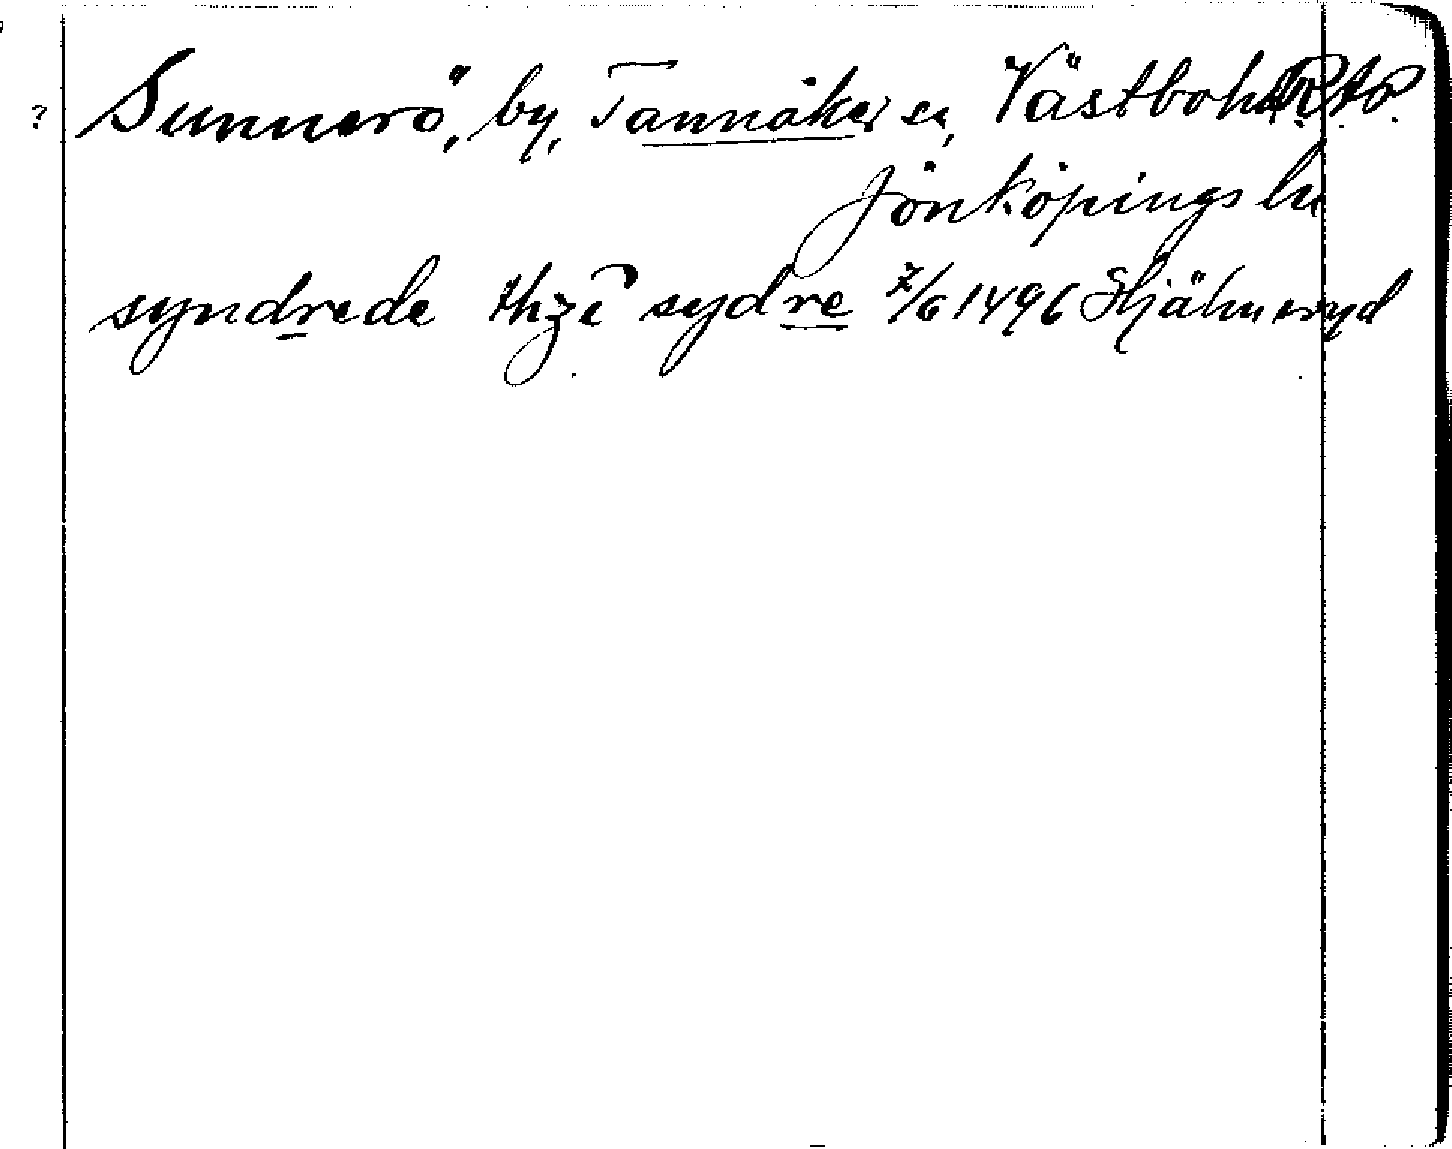 ? Sunnerö, by, Tannåker sn, Västbo hd R.A.P.
Jönköpings ln
syndrede thz ē sydre 7/6 1496 Hjälmseryd